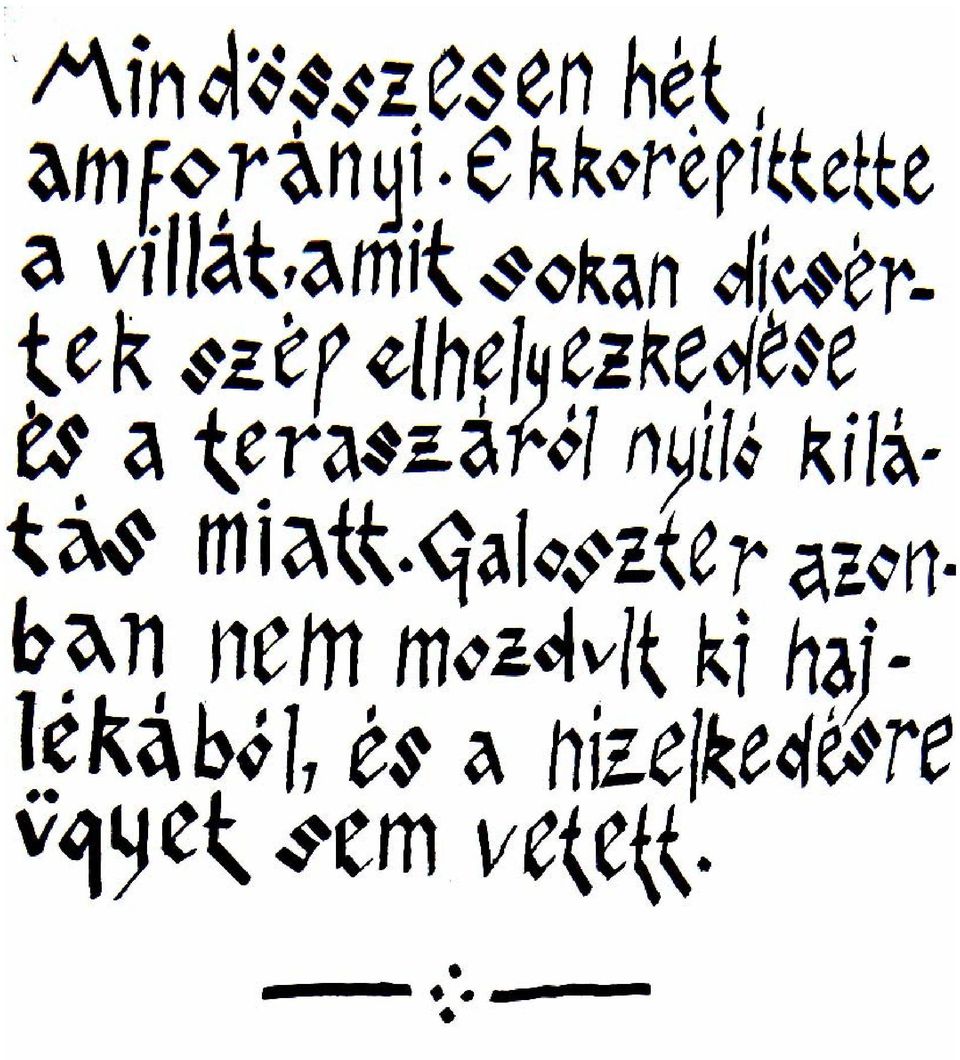 Mindösszesen hét
amforányi. Ekkor építtette
a villát, amit sokan dícsér-
tek szép elhelyezkedése
és a teraszáról nyíló kilá-
tás miatt. Galoszter azon-
ban nem mozdult ki haj-
lékából, és a hízelkedésre
ügyet sem vetett.